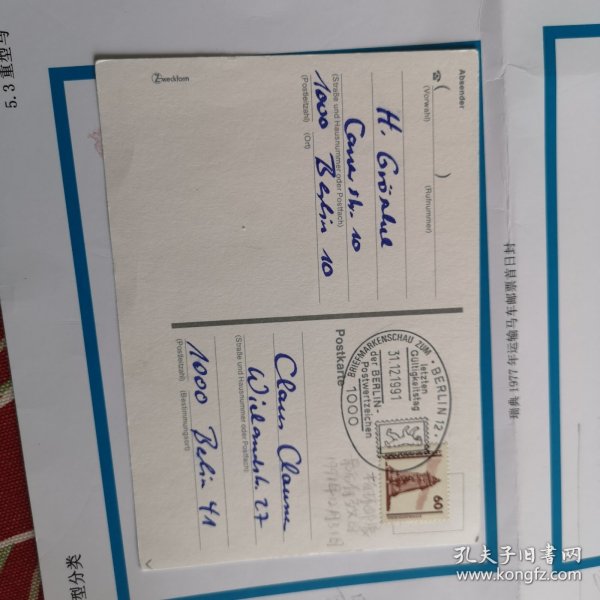 5.3 重型马
瑞典 1977 年运输马车邮票首日封
型分类
Absender
(Vorwahl)
(Rufnummer)
H. Gröschel
(Straße und Hausnummer oder Postfach)
1000 Berlin 10
(Postleitzahl) (Ort)
Zweckform
Postkarte
BRIEFMARKENSCHAU ZUM
letzten
Gültigkeitstag
31.12.1991
der BERLIN-
Postwertzeichen
1000
BERLIN 12
60
Claus Clausen
Wielandstr. 27
(Straße und Hausnummer oder Postfach)
1000 Berlin 41
(Postleitzahl) (Bestimmungsort)
孔夫子旧书网
www.kongfz.com